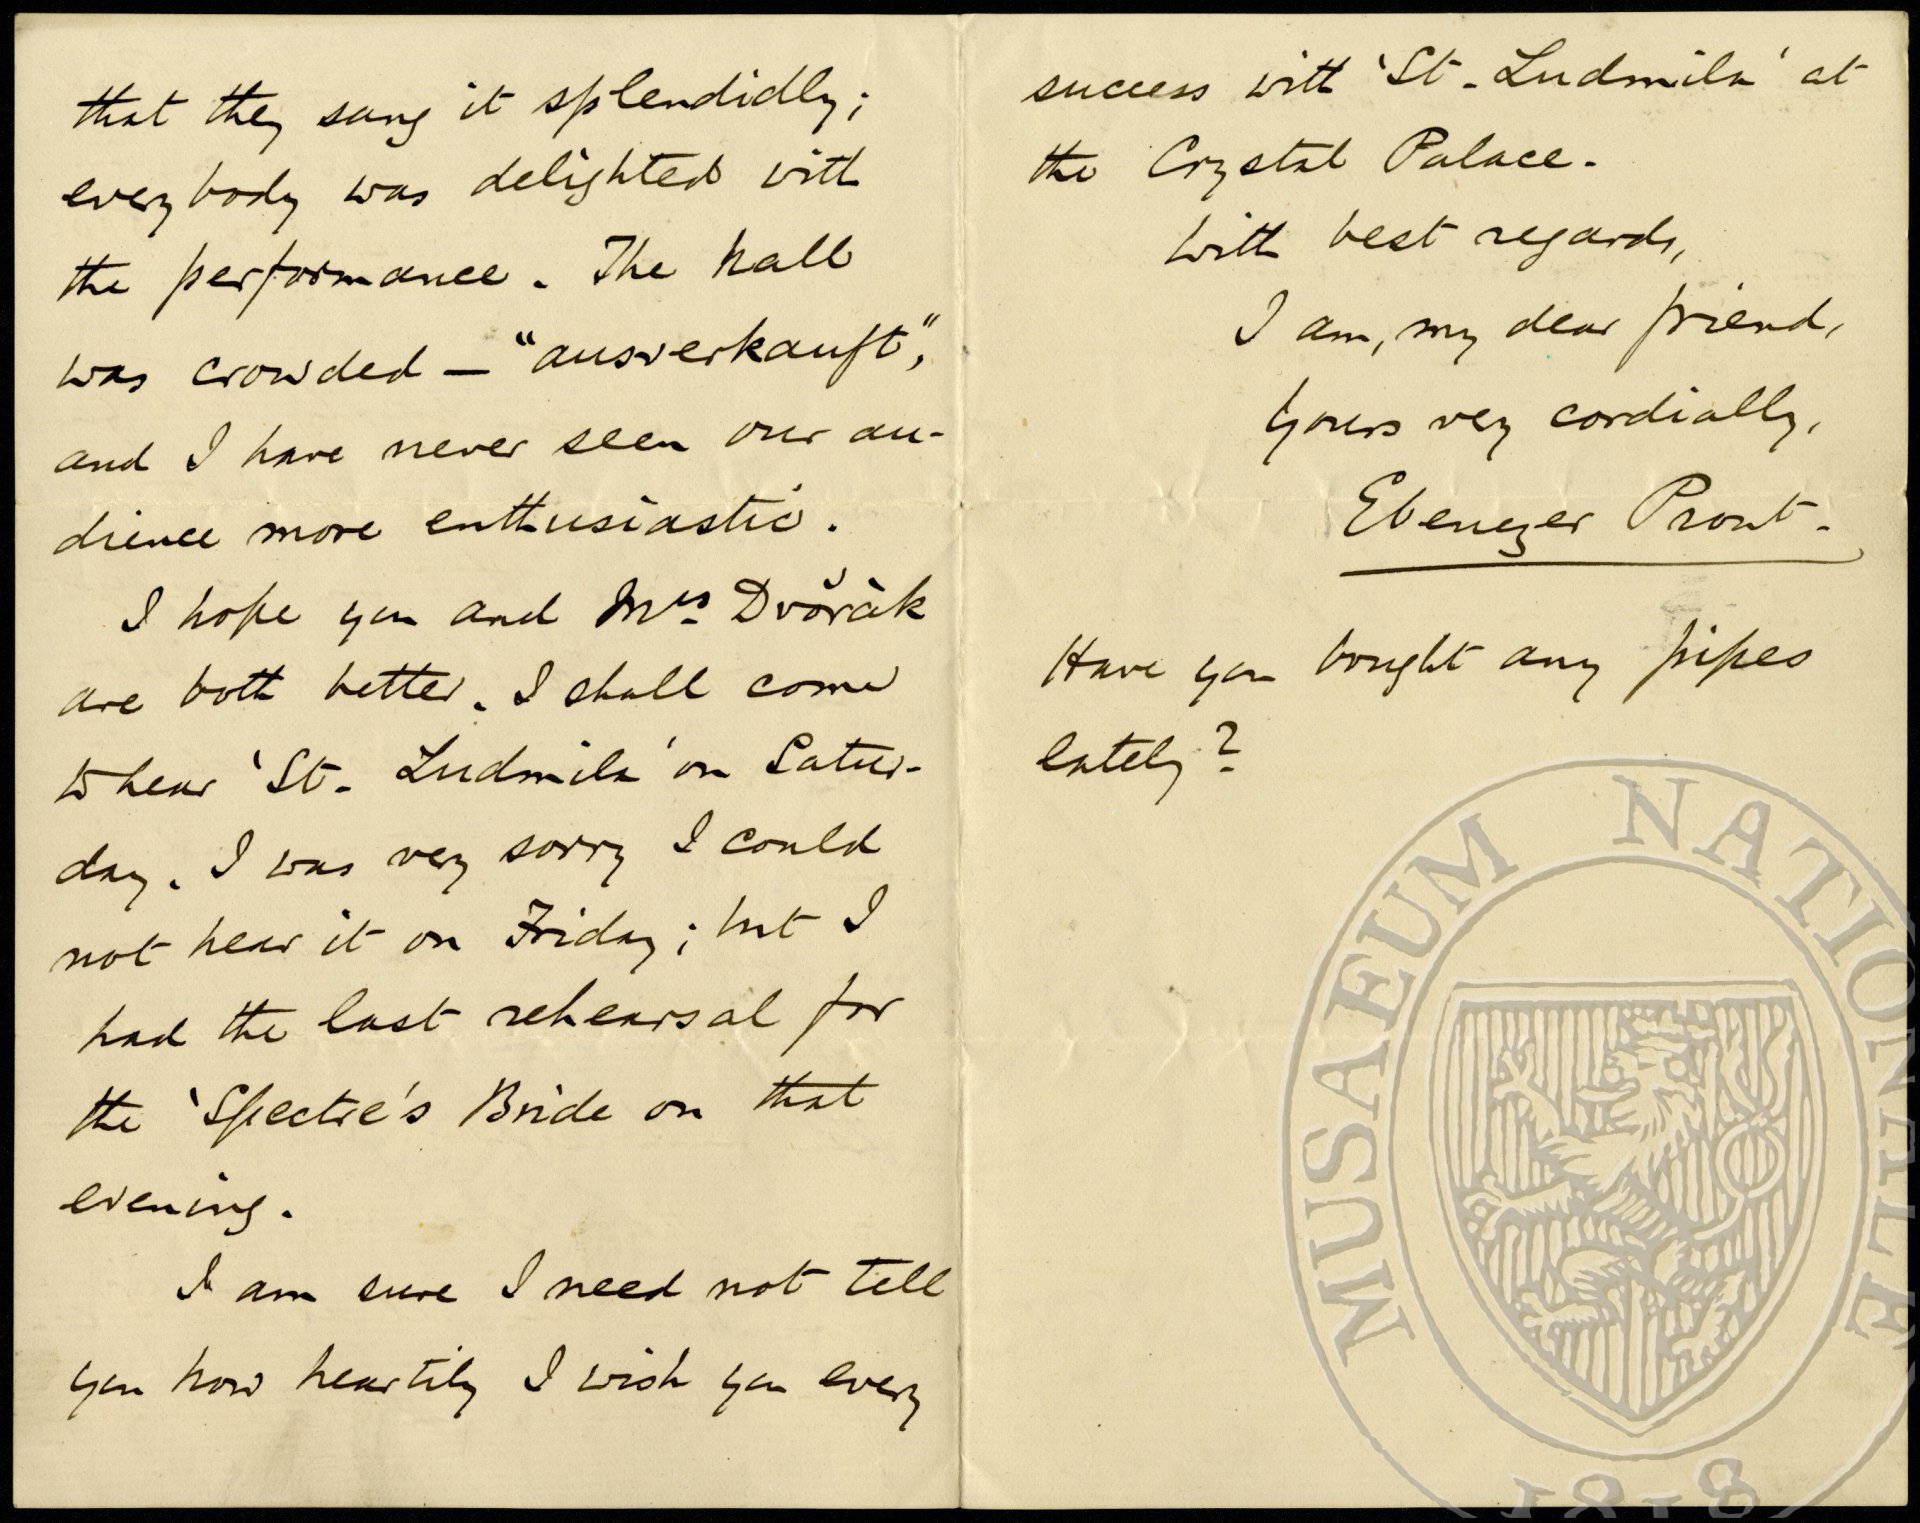 that they sang it splendidly;
everybody was delighted with
the performance. The hall
was crowded — "ausverkauft",
and I have never seen our au-
dience more enthusiastic.
I hope you and Mrs. Dvořàk
are both better. I shall come
to hear 'St. Ludmila' on Satur-
day. I was very sorry I could
not hear it on Friday; but I
had the last rehearsal for
the 'Spectre's Bride on that
evening.
I am sure I need not tell
you how heartily I wish you every
success with 'St. Ludmila' at
the Crystal Palace.
With best regards,
I am, my dear friend,
Yours very cordially,
Ebenezer Prout.
Have you bought any pipes
lately?
MUSAEUM NATIONALE
1818